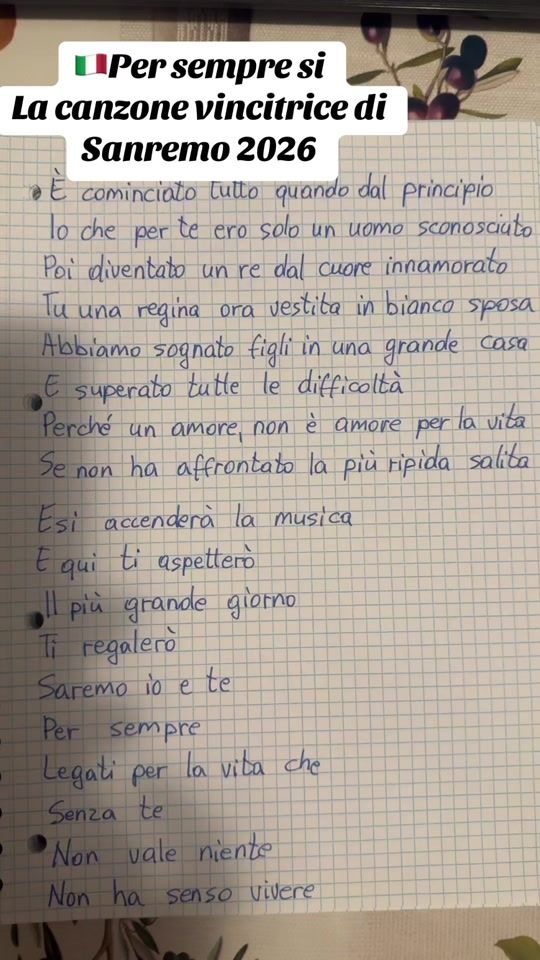 🇮🇹Per sempre si
La canzone vincitrice di
Sanremo 2026
È cominciato tutto quando dal principio
Io che per te ero solo un uomo sconosciuto
Poi diventato un re dal cuore innamorato
Tu una regina ora vestita in bianco sposa
Abbiamo sognato figli in una grande casa
E superato tutte le difficoltà
Perché un amore, non è amore per la vita
Se non ha affrontato la più ripida salita
E si accenderà la musica
E qui ti aspetterò
Il più grande giorno
Ti regalerò
Saremo io e te
Per sempre
Legati per la vita che
Senza te
Non vale niente
Non ha senso vivere